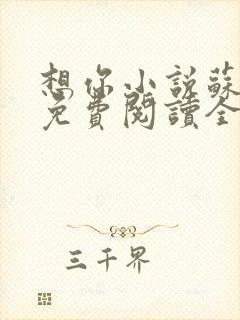 想你小說蘇
免費閱讀全
三千界